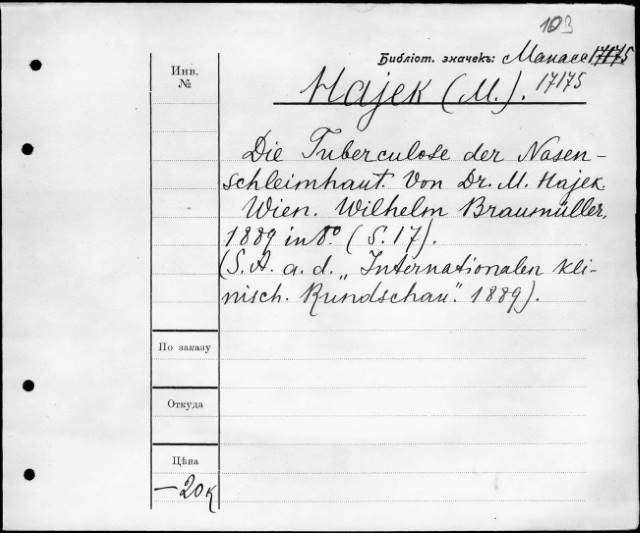 103
Библіот. значекъ: Манасс 17175
Инв.
№
Hajek (M.). 17175
Die Tuberculose der Nasen-
schleimhaut. Von Dr. M. Hajek.
Wien. Wilhelm Braumüller.
1889 in 8º. (S. 17).
(S. A. a. d. „Internationalen kli-
nisch. Rundschau“. 1889).
По заказу
Откуда
Цѣна
—20к